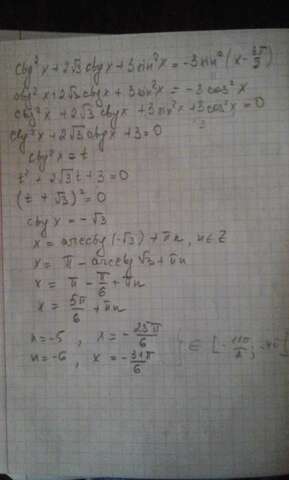 ctg²x + 2√3 ctgx + 3sin²x = -3sin²(x - 3π/2)
ctg²x + 2√3 ctgx + 3sin²x = -3cos²x
ctg²x + 2√3 ctgx + 3sin²x + 3cos²x = 0
ctg²x + 2√3 ctgx + 3 = 0
ctg²x = t
t² + 2√3 t + 3 = 0
(t + √3)² = 0
ctg x = -√3
x = arcctg(-√3) + πn, n ∈ Z
x = π - arcctg √3 + πn
x = π - π/6 + πn
x = 5π/6 + πn
n = -5, x = -25π/6
n = -6, x = -31π/6 } ∈ [-11π/2; -4π]